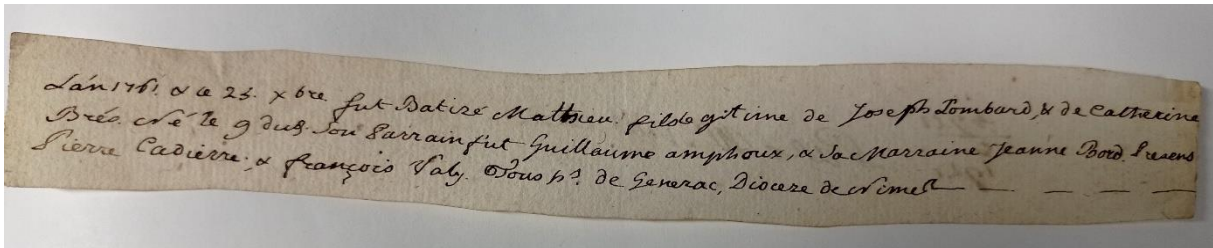 L'an 1761. & ce 23. xbre. fut Batizé Mathieu, fils legitime de Joseph Lombard, & de Catherine
Brés. Né le 9 dud. Son Parrain fut Guillaume amphoux, & Sa Marraine Jeanne Bord. Presens
Pierre Cadierre, & françois Valz. Tous hs. de Generac, Dioceze de Nimes